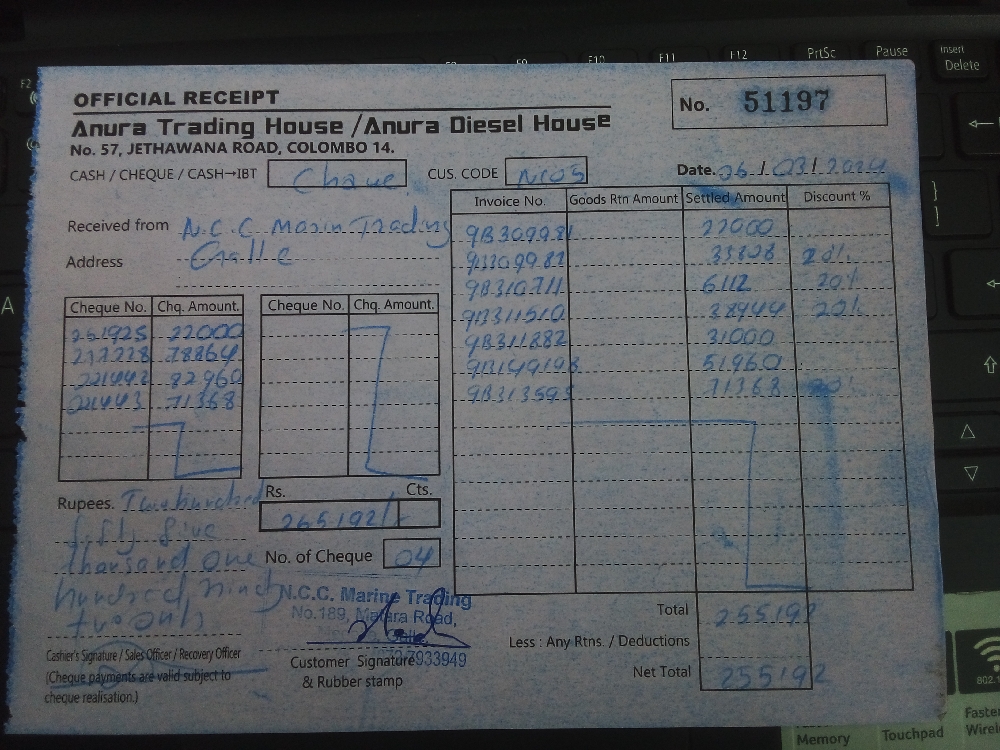 OFFICIAL RECEIPT
No. 51197
Anura Trading House /Anura Diesel House
No. 57, JETHAWANA ROAD, COLOMBO 14.
CASH / CHEQUE / CASH→IBT
CUS. CODE
Date. 06/03/2024
Received from N.C.C Marin Trading
Address Galle
Invoice No. Goods Rtn Amount Settled Amount Discount %
22000
20%
6112 20%
20%
31000
51960
71368
Cheque No. Chq. Amount. Cheque No. Chq. Amount.
251925 22000
78864
82960
71368
Rupees. Two hundred
fifty five
thousand one
hundred, ninty
two only
Rs. Cts.
No. of Cheque 04
N.C.C. Marine Trading
No.189, Matara Road,
Galle.
7933949
Customer Signature
& Rubber stamp
Cashier's Signature / Sales Officer / Recovery Officer
(Cheque payments are valid subject to
cheque realisation.)
Total 255192
Less : Any Rtns. / Deductions
Net Total 255192
F2
F10
F11
F12
PrtSc
Pause
Insert
Delete
A
}
]
802.1
Memory
Touchpad
Faster